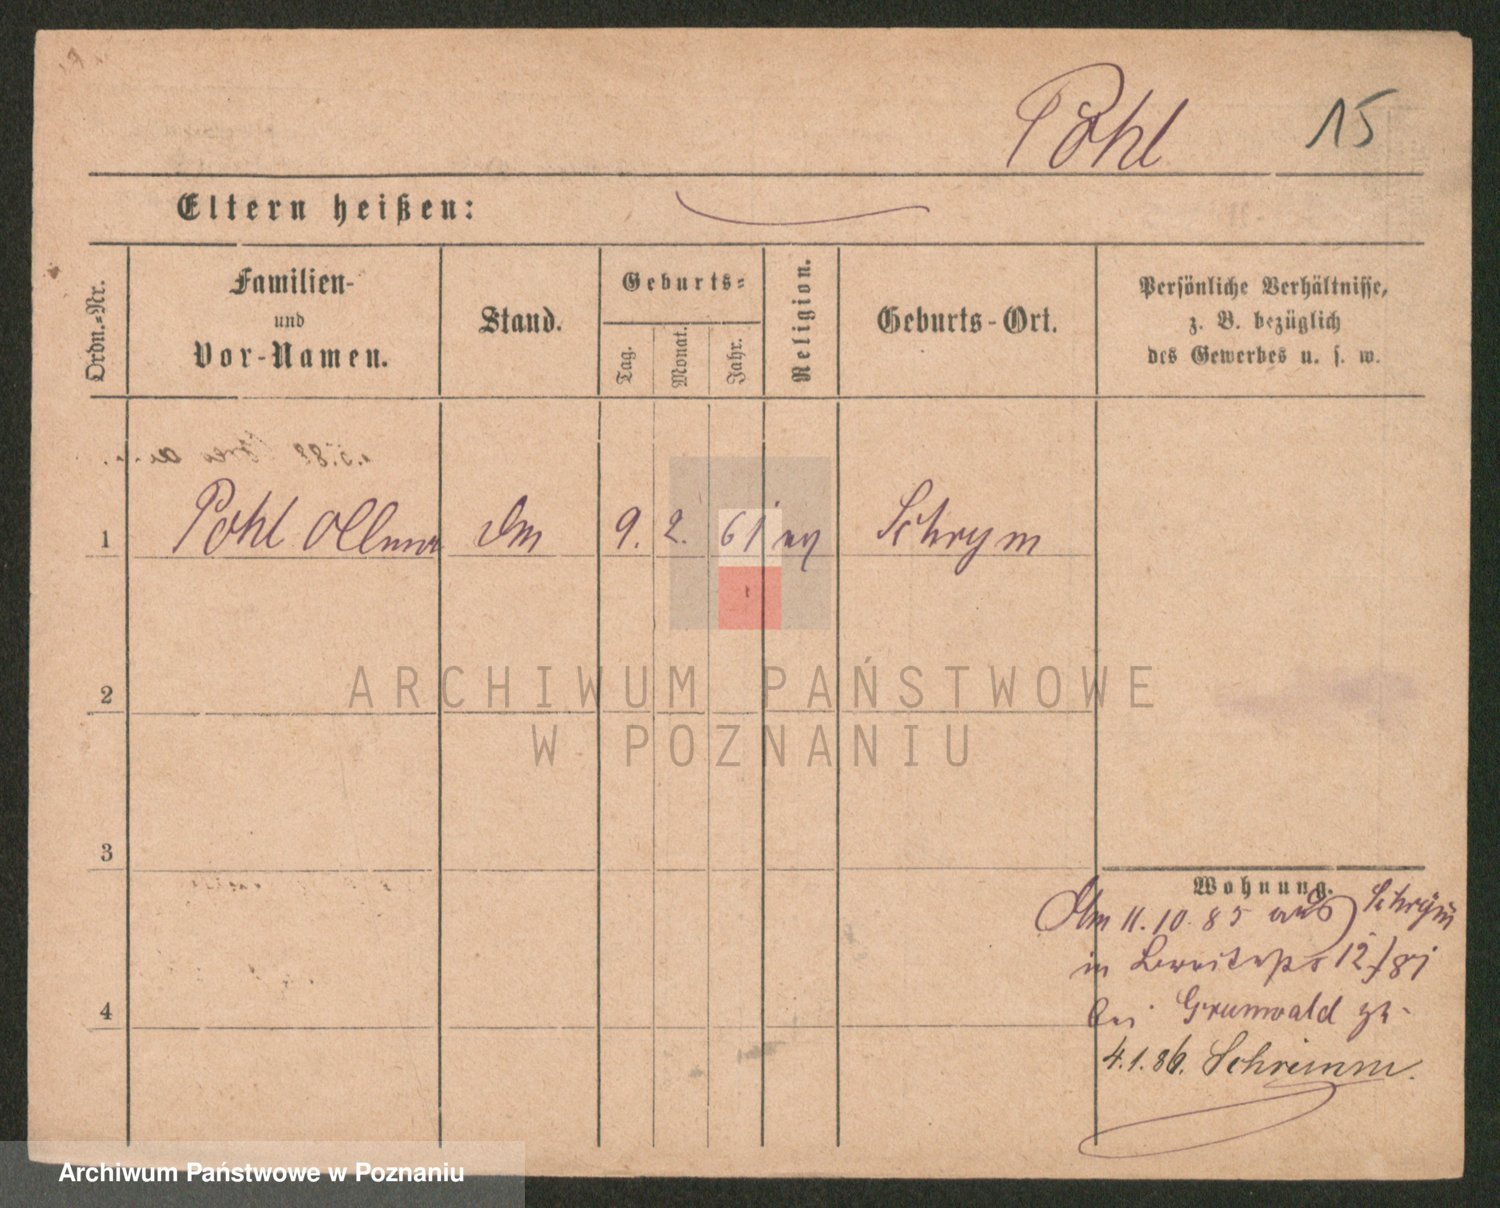 Pohl 15
Eltern heißen:
Ordn.-Nr.
Familien-
und
Vor-Namen.
Stand.
Geburts-
Tag.
Monat.
Jahr.
Religion.
Geburts-Ort.
Persönliche Verhältnisse,
z. B. bezüglich
des Gewerbes u. s. w.
1 Pohl 9. 2. 61 Schrym
2
ARCHIWUM PAŃSTWOWE
W POZNANIU
3
Wohnung.
11.10.85 aus Schrym
in 12/81
4
bei Grunwald
4.1.86. Schrimm.
Archiwum Państwowe w Poznaniu